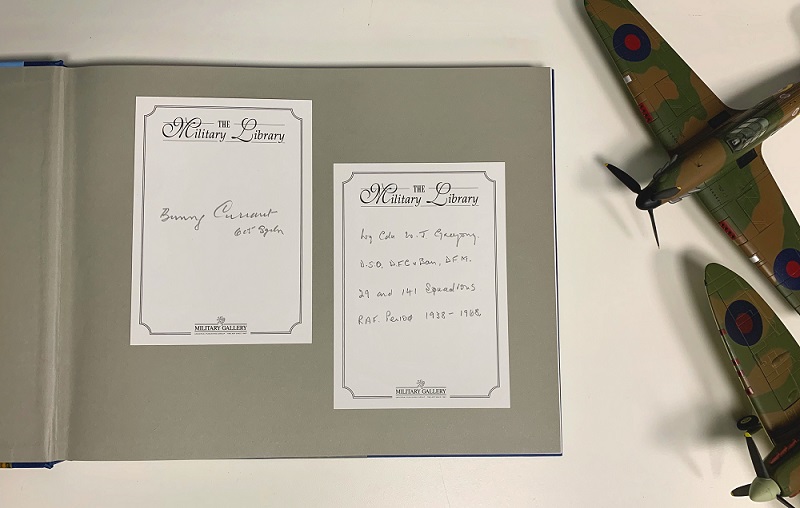 THE
Military Library
Bunny Currant
605 Sqdn
MILITARY GALLERY
THE
Military Library
Wg Cdr W. J. Gregory.
D.S.O. D.F.C & Bar, D.F.M.
29 and 141 Squadrons
RAF Period 1938 - 1968
MILITARY GALLERY